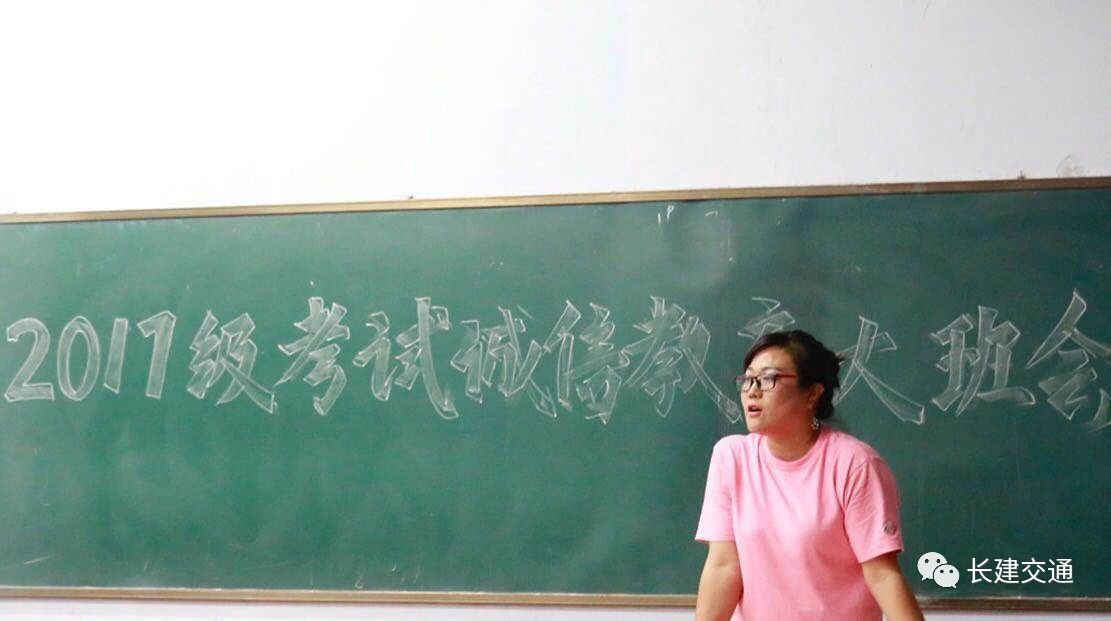 2017级考试诚信教育大班会
长建交通